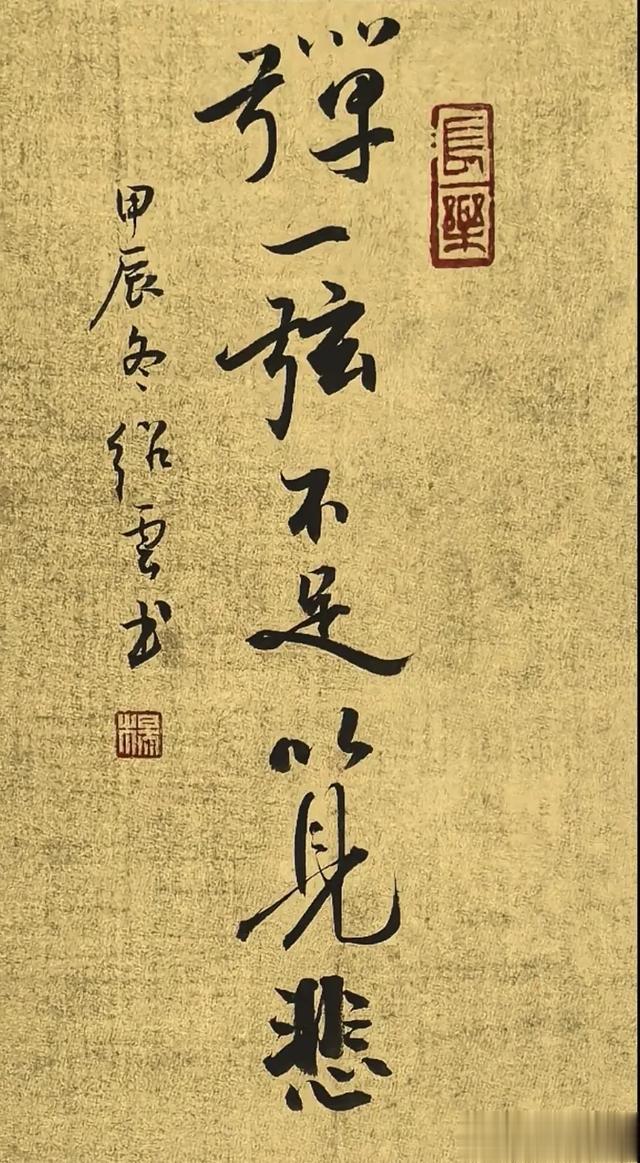 彈一弦不足以見悲
長樂
甲辰冬紹雲书